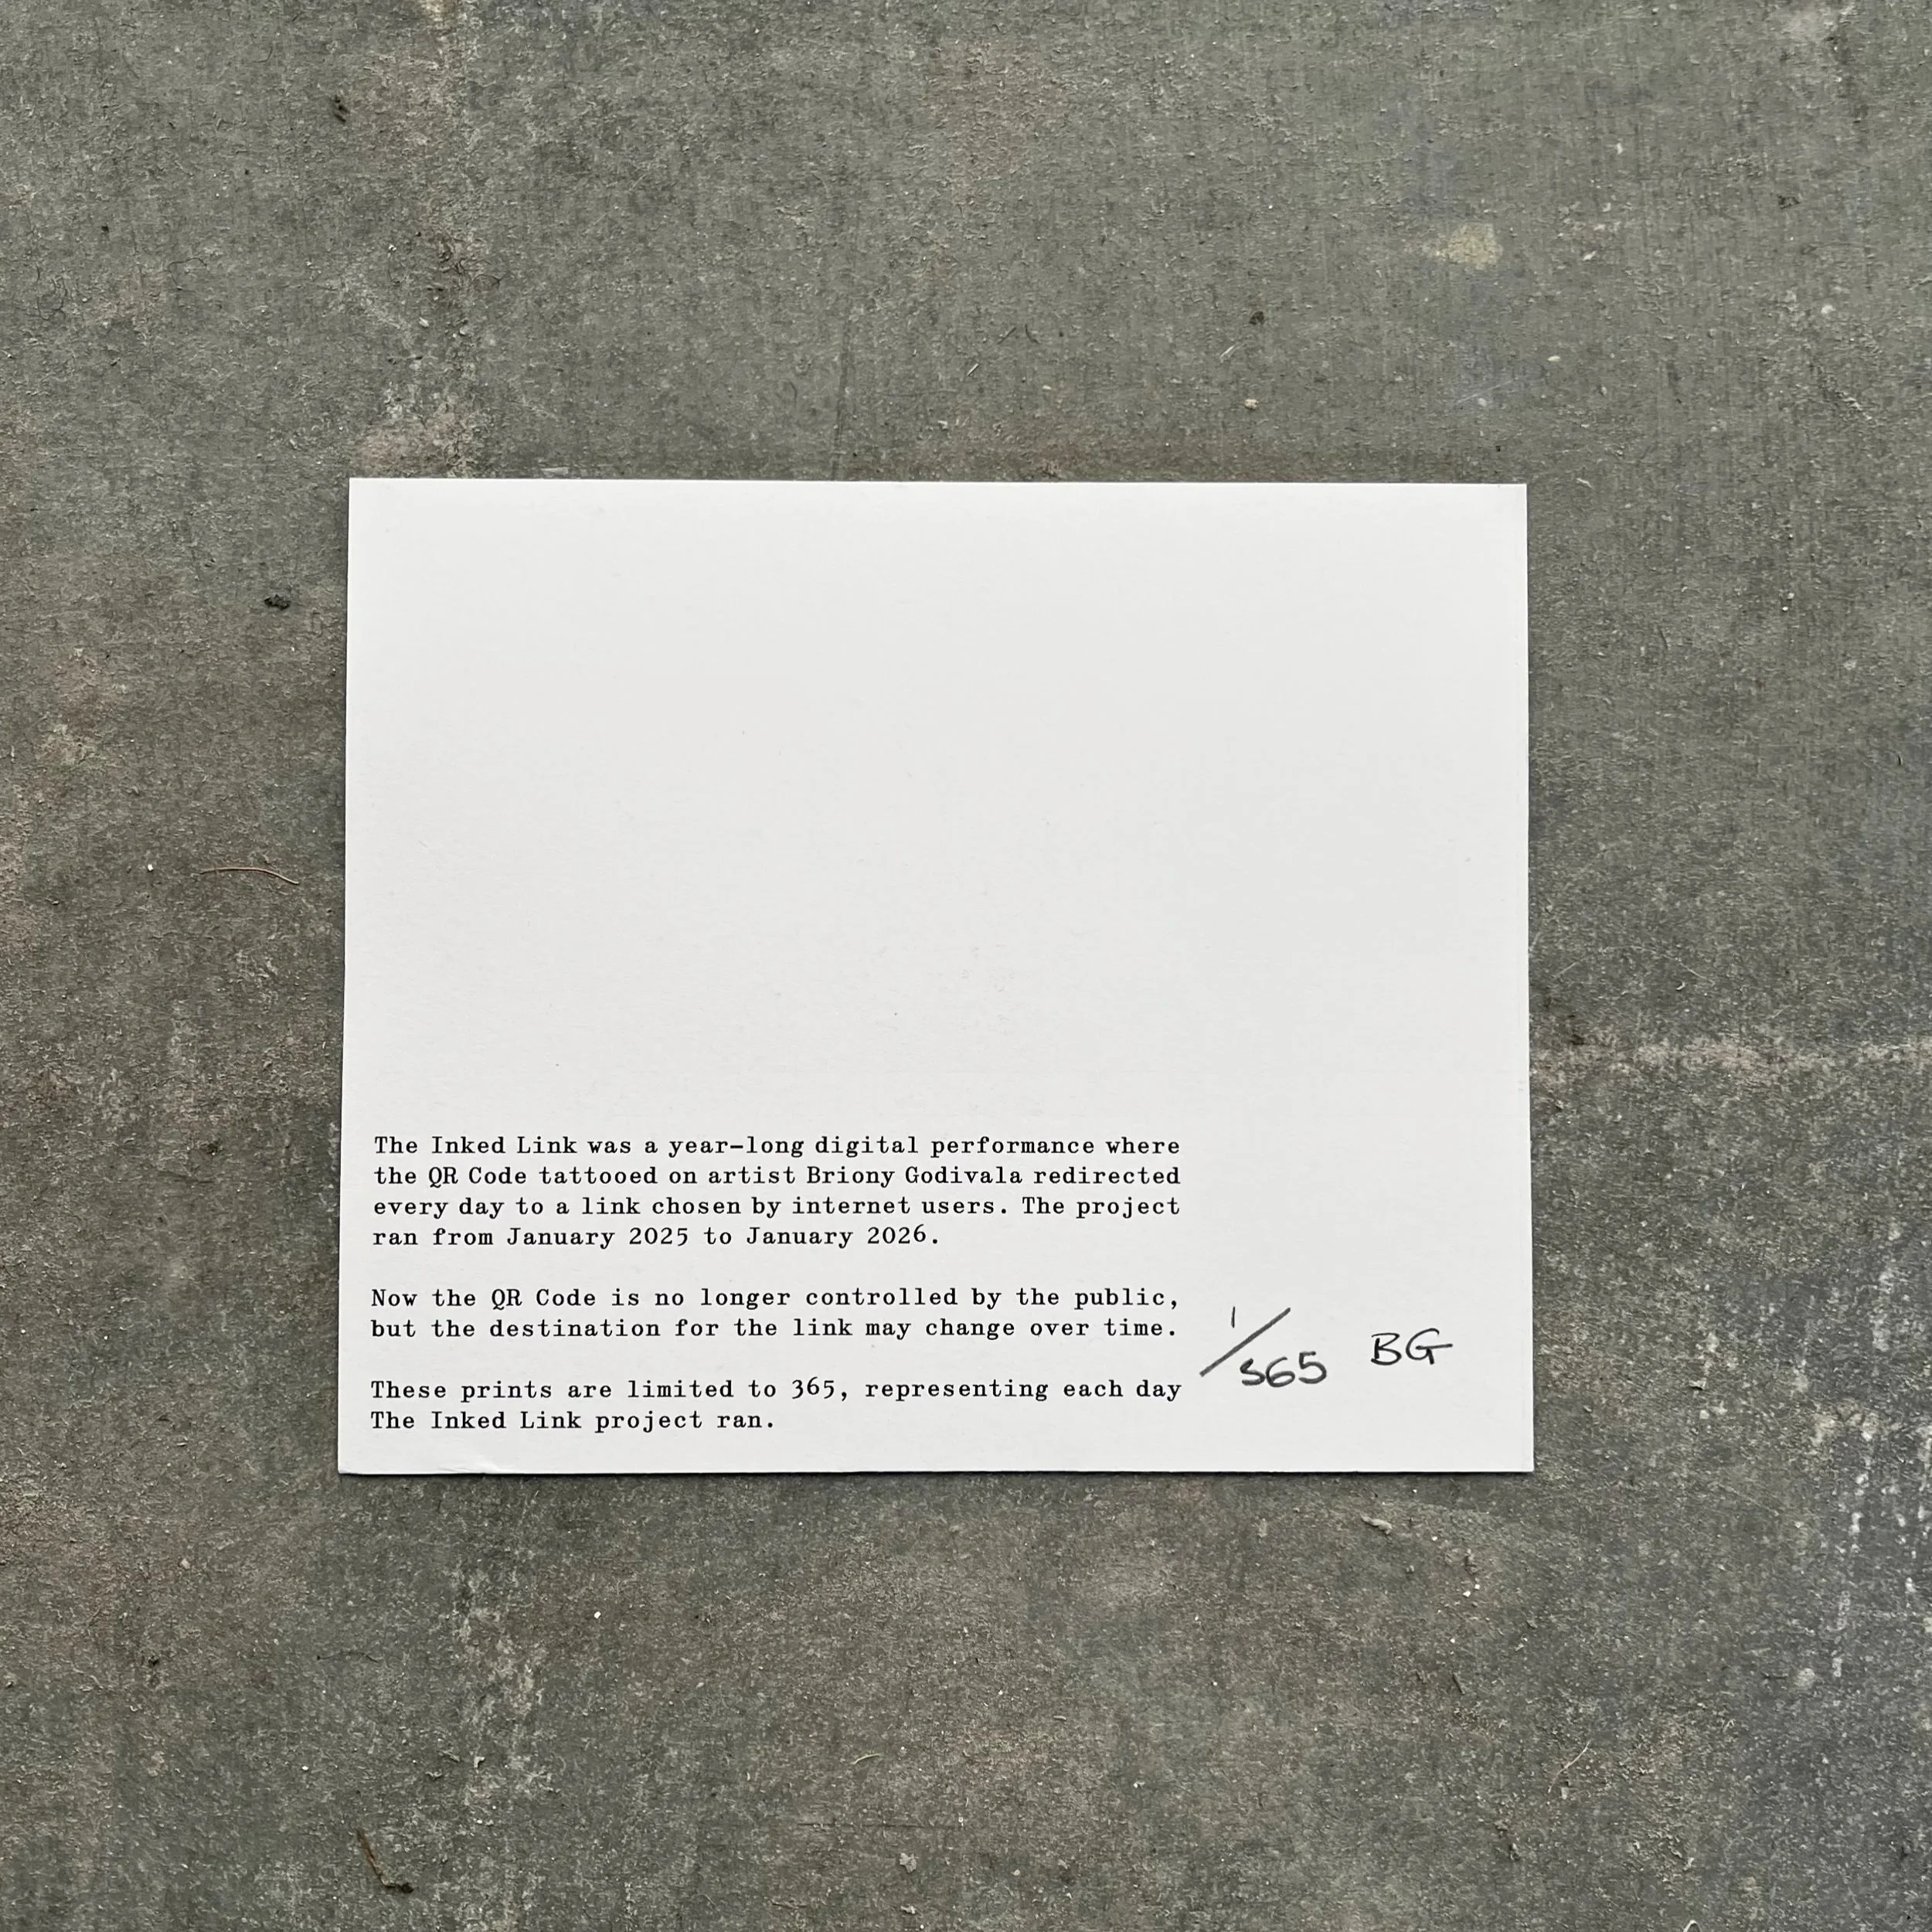 The Inked Link was a year-long digital performance where
the QR Code tattooed on artist Briony Godivala redirected
every day to a link chosen by internet users. The project
ran from January 2025 to January 2026.
Now the QR Code is no longer controlled by the public,
but the destination for the link may change over time.
These prints are limited to 365, representing each day
The Inked Link project ran.
1/365 BG